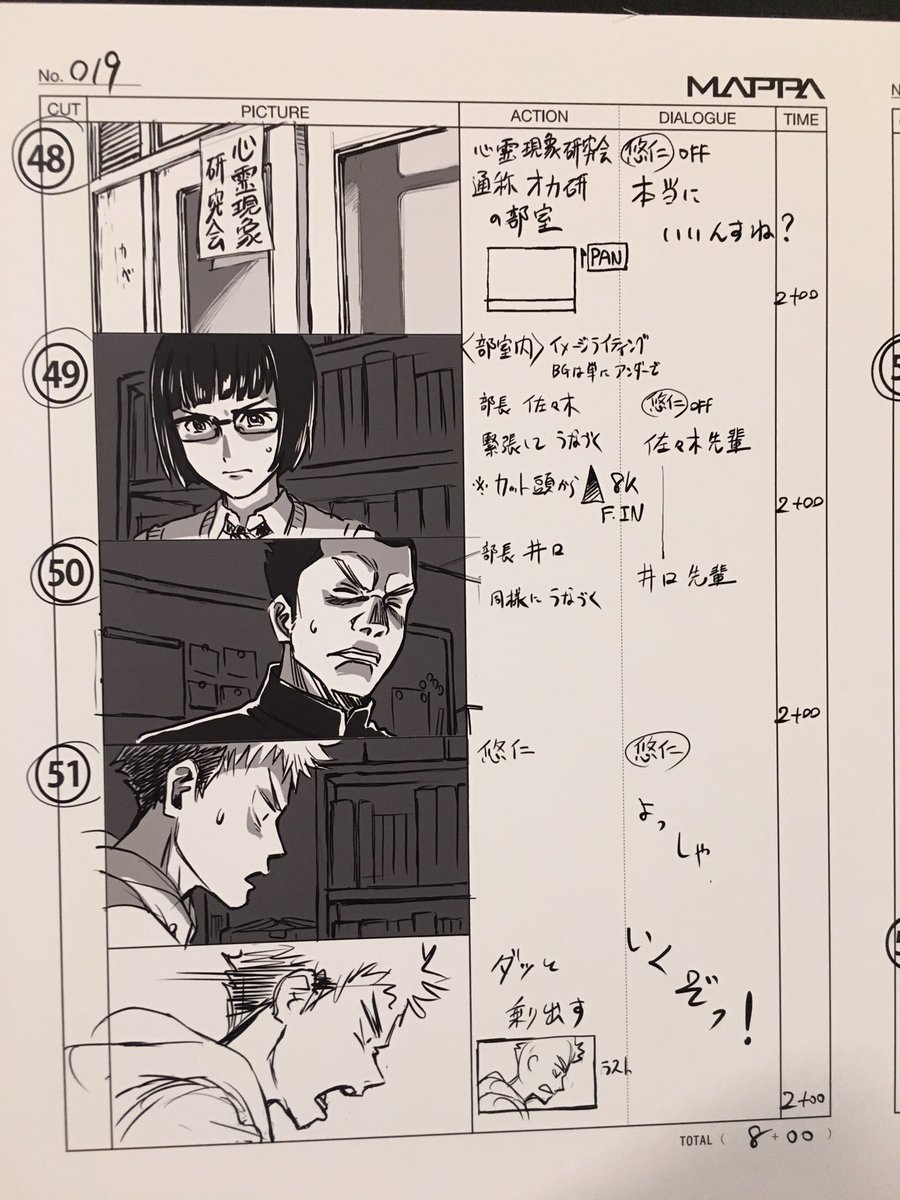 No. 019
MAPPA
CUT PICTURE ACTION DIALOGUE TIME
48
心霊現象
研究会
カベ
心霊現象研究会
通称 オカ研
の部室
PAN
悠仁 OFF
本当に
いいんすね?
2+00
49
〈部室内〉イメージライティング
BGは単にアンダーで
部長 佐々木
緊張して うなづく
※カット頭から 8K
F.IN
悠仁 OFF
佐々木先輩
井口先輩
2+00
50
部長 井口
同様に うなづく
2+00
51
悠仁
悠仁
よっ
しゃ
ダッと
乗出す
ラスト
いく
ぞっ!
2+00
TOTAL ( 8+00 )